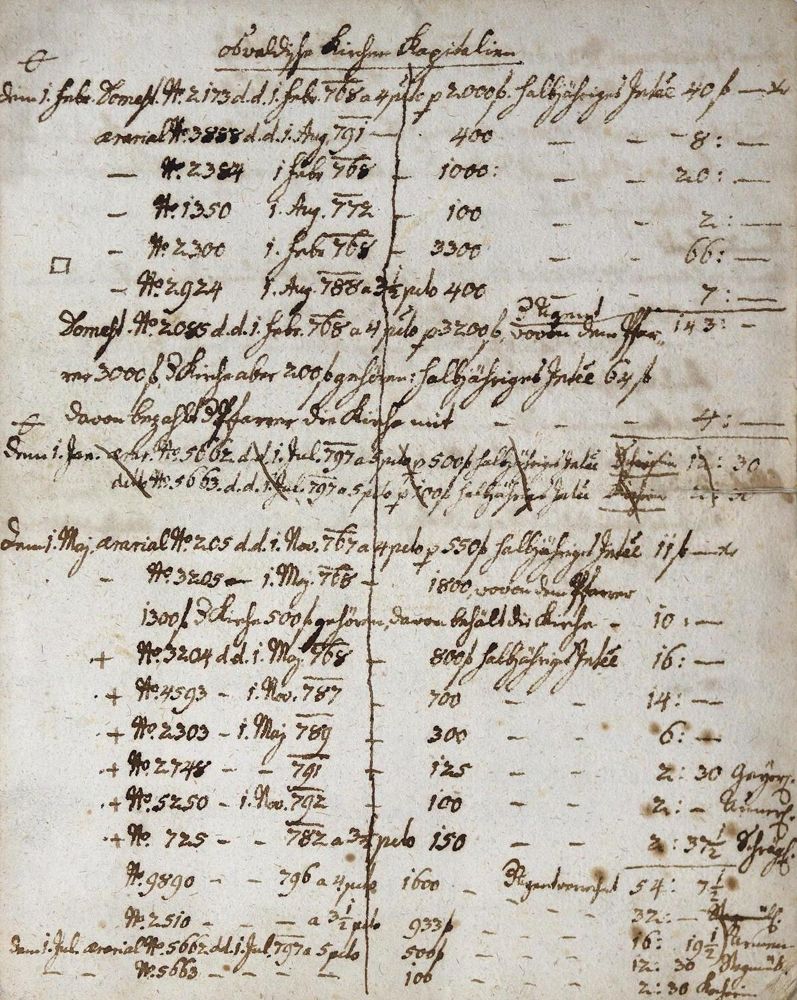 osvaldische Kirchen Kapitalien
Dem 1. Febr. Domest. No. 2173 d.d. 1. Febr. 768 a 4 pcto p 2000 f. halbjähriges Intee 40 f — xr
ærarial No. 3888 d.d. 1. Aug. 791 — 400 — — 8: —
— No. 2384 1 Febr. 768 — 1000: — — 20: —
— No. 1350 1. Aug. 772 — 100 — — 2: —
— No. 2300 1. Febr. 768 — 3300 — — 66: —
— No. 2924 1. Aug. 788 a 3½ pcto 400 — — 7: —
Domest. No. 2085 d.d. 1. Febr. 768 a 4 pcto p 3200 f, wovon dem Pfar- 143: —
rer 3000 f, d Kirche aber 200 f gehören: halbjähriges Intee 64 f
davon bezahlt d Pfarrer die Kirche mit — — — 4: —
Dem 1. Jan. ærar. No. 5662. d.d. 1. Jul. 797 a 5 pcto p 500 f halbjähriges Intee 12: 30
detto No. 5663. d.d. 1. Jul. 797 a 5 pcto p 100 f halbjähriges Intee 2: 30
Dem 1. Maj. ærarial No. 205 d.d. 1. Nov. 767 a 4 pcto p 550 f halbjähriges Intee 11 f — xr
— No. 3205 — 1. Maj. 768 — 1800, wovon dem Pfarrer
1300 f, d Kirche 500 f gehören, davon behält die Kirche — 10: —
+ No. 3204 d.d. 1. Maj. 768 — 800 f halbjähriges Intee 16: —
+ No. 4593 — 1. Nov. 787 — 700 — — 14: —
+ No. 2303 — 1. Maj 789 — 300 — — 6: —
+ No. 2748 — — 791 — 125 — — 2: 30
+ No. 5250 — 1. Nov. 792 — 100 — — 2: —
+ No. 725 — — 782 a 3½ pcto 150 — — 2: 37½
No. 9890 — — 796 a 4 pcto 1600 — 54: 7½
No. 2510 — — — a 3½ pcto 933 f — — 32: —
Dem 1. Jul. ærarial No. 5662 d.d. 1. Jul. 797 a 5 pcto 500 f — — 16: 19½
— — No. 5663 — — — — 100 — — 12: 30
2: 30